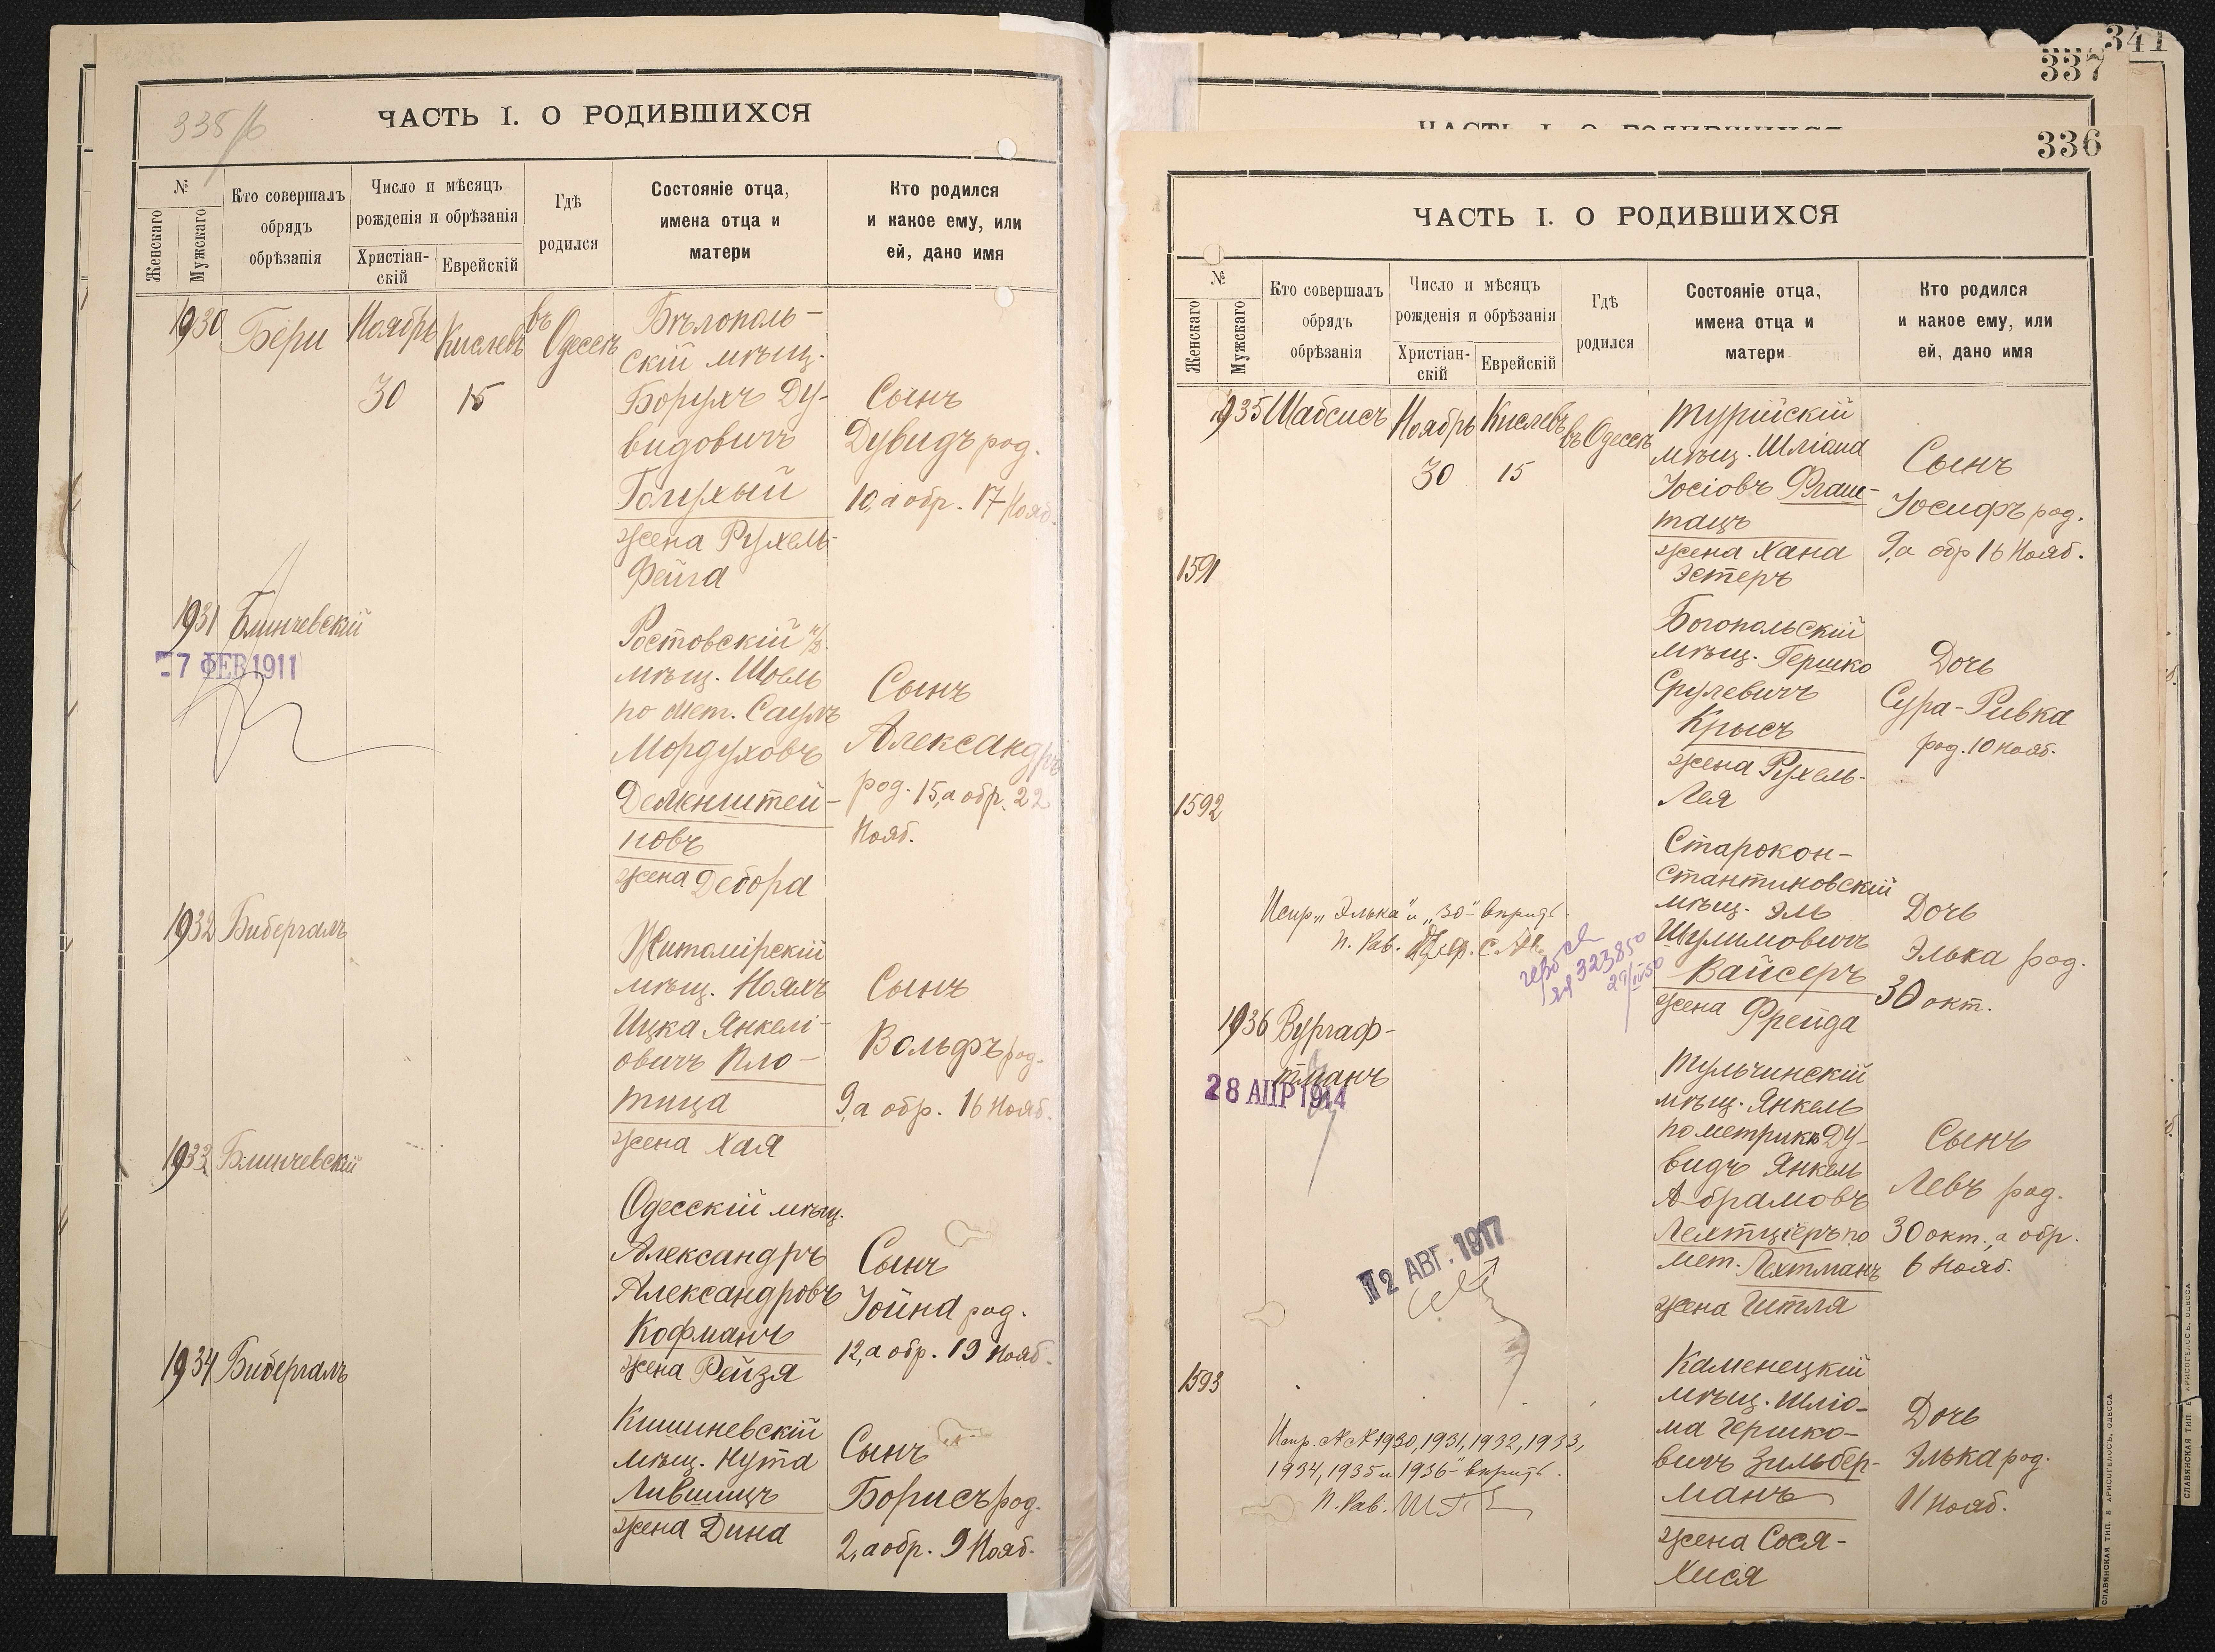 ЧАСТЬ I. О РОДИВШИХСЯ
№
Женскаго
Мужскаго
Кто совершалъ
обрядъ
обрѣзанія
Число и мѣсяцъ
рожденія и обрѣзанія
Христіан-
скій
Еврейскій
Гдѣ
родился
Состояніе отца,
имена отца и
матери
Кто родился
и какое ему, или
ей, дано имя
1930
Бери
Ноябрь
30
Кислевъ
15
въ
Одессѣ
Бѣлополь-
скій мѣщ.
Борухъ Ду-
видовичъ
Голухый
жена Рухель-
Фейга
Сынъ
Дувидъ род.
10, а обр. 17 Нояб.
1931 Блинчевскій
7 ФЕВ 1911
Ростовскій н/д.
мѣщ. Шовль
по мет. Саулъ
Мордуховъ
новъ
жена Дебора
Сынъ
Александръ
род. 15, а обр. 22
Нояб.
1932 Бибергалъ
Житомірскій
мѣщ. Нояхъ
Ицка Янкелі-
овичъ Пло-
тица
жена Хая
Сынъ
Вольфъ род.
9, а обр. 16 Нояб.
1933 Блинчевскій
Одесскій мѣщ.
Александръ
Александровъ
Кофманъ
жена Рейзя
Сынъ
Іойна род.
12, а обр. 19 Нояб.
1934 Бибергалъ
Кишиневскій
мѣщ. Нута
Лившицъ
жена Дина
Сынъ
Борисъ род.
2, а обр. 9 Нояб.
341
337
336
ЧАСТЬ I. О РОДИВШИХСЯ
№
Женскаго
Мужскаго
Кто совершалъ
обрядъ
обрѣзанія
Число и мѣсяцъ
рожденія и обрѣзанія
Христіан-
скій
Еврейскій
Гдѣ
родился
Состояніе отца,
имена отца и
матери
Кто родился
и какое ему, или
ей, дано имя
1935 Шабсисъ
Ноябрь
30
Кислевъ
15
въ Одессѣ
Турійскій
мѣщ. Шліома
Іосіовъ
жена Хана
Эстеръ
Сынъ
Іосифъ род.
9, а обр 16 Нояб.
1591
Богопольскій
мѣщ. Гершко
Срулевичъ
Крысъ
жена Рухель-
Лея
Дочь
Сура-Ривка
род. 10 Нояб.
1592
Старокон-
стантиновскій
мѣщ. Эль
Шулимовичъ
Вайсеръ
жена Фрейда
Дочь
Элька род.
30 окт.
Испр. „Элька“ и „30“ вѣрить.
П. Рав.
323850
1936 Вургаф-
тманъ
28 АПР 1914
Тульчинскій
мѣщ. Янкель
по метрикѣ Ду-
видъ Янкель
Абрамовъ
Лехтціеръ по
мет. Лехтманъ
жена Гитля
Сынъ
Левъ род.
30 окт., а обр.
6 Нояб.
12 АВГ. 1917
1593
Каменецкій
мѣщ. Шліо-
ма Гершко-
вичъ Зильбер-
манъ
жена Сося-
Хися
Дочь
Элька род.
11 Нояб.
Испр. №№ 1930, 1931, 1932, 1933,
1934, 1935 и 1936 - вѣрить.
П. Рав.
СЛАВЯНСКАЯ ТИП. Е ХРИСОГЕЛОСЪ, ОДЕССА